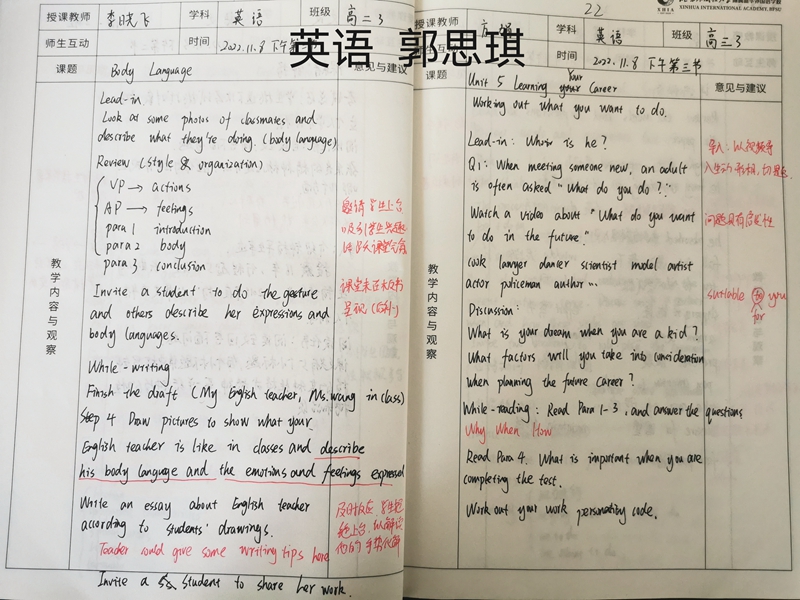 英语 郭思琪
授课教师 李晓飞 学科 英语 班级 高二3
师生互动 时间 2022.11.8 下午第
课题 Body Language 意见与建议
教学内容与观察
Lead-in
Look at some photos of classmates and
describe what they're doing. (body language)
Review (style & organization)
VP → actions
AP → feelings
para 1 introduction
para 2 body
para 3 conclusion
Invite a student to do the gesture
and others describe her expressions and
body languages.
While-writing
Finish the draft (My English teacher, Ms. wang in class)
Step 4 Draw pictures to show what your
English teacher is like in classes and describe
his body language and the emotions and feelings expressed
Write an essay about English teacher
according to students' drawings.
Teacher could give some writing tips here
Invite a student to share her work.
邀请学生上台
课堂未正
呈现
学生
上台
授课教师 学科 英语 班级 高三3
22
XINHUA INTERNATIONAL ACADEMY, BFSU
师生互动 时间 2022.11.8 下午第三节
课题 Unit 5 Learning your Your Career 意见与建议
Working out what you want to do.
教学内容与观察
Lead-in: Who is he?
Q1: When meeting someone new, an adult
is often asked "What do you do?"
Watch a video about "What do you want
to do in the future."
cook lawyer dancer scientist model artist
actor policeman author...
Discussion:
What is your dream when you are a kid?
What factors will you take into consideration
when planning the future career?
While-reading: Read Para 1-3, and answer the questions
Why When How
Read Para 4. What is important when you are
completing the test.
Work out your work personality code.
导入: 以视频导
入生动形象, 切题
问题具有启发性
suitable to you
for